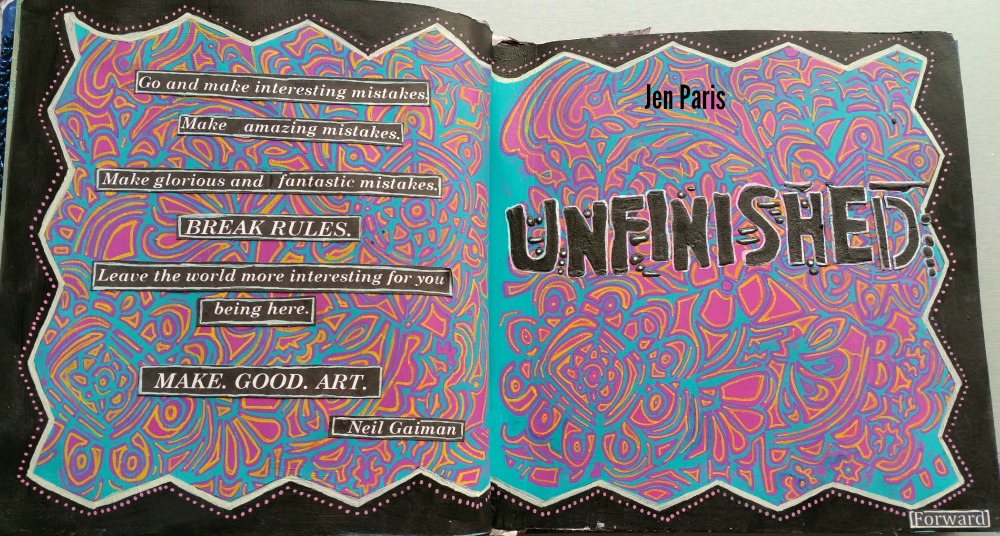 Go and make interesting mistakes.
Make amazing mistakes.
Make glorious and fantastic mistakes.
BREAK RULES.
Leave the world more interesting for you
being here.
MAKE. GOOD. ART.
Neil Gaiman
Jen Paris
UNFINISHED
Forward